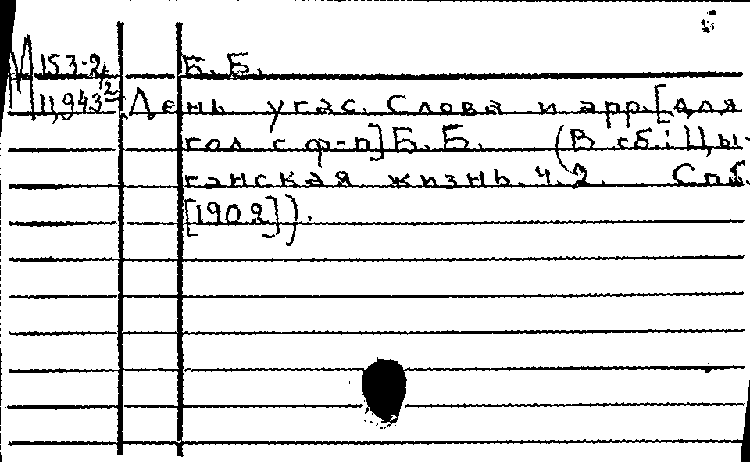 М 153-2 Б. Б.
11,943 День угас. Слова и арр. [для
гол с ф-п] Б. Б. (В сб.: Цы-
ганская жизнь. Ч. 2. Спб.
[1902]).